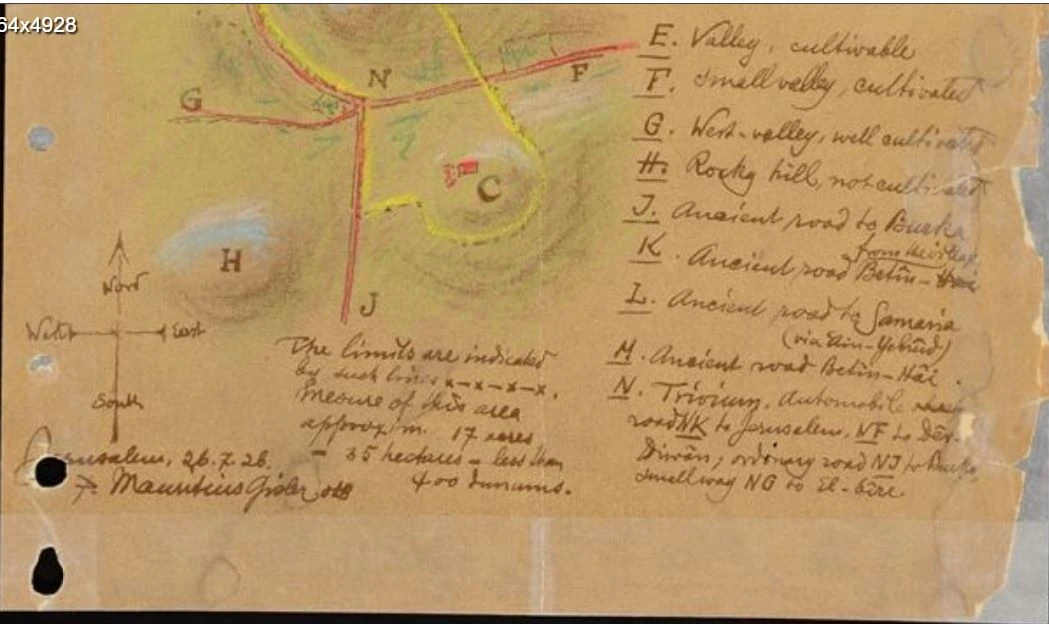 64x4928
E. Valley, cultivable
F. small valley, cultivated
G. West-valley, well cultivated
H. Rocky hill, not cultivated
J. Ancient road to Burka
K. Ancient road Betin-Hai
L. Ancient road to Samaria
(via Ain-Yebrūd)
M. Ancient road Betin-Hai.
N. Trivium. Automobile
road NK to Jerusalem, NF to Dēr-
Diwān; ordinary road NJ to Burka,
small way NG to El-bīre
N
F
G
C
H
J
Nord
West
East
South
The limits are indicated
by such lines x-x-x-x-x.
Mesure of this area
approxim. 17 acres
= 35 hectares = less than
400 dunums.
Jerusalem, 26.7.26.
P. Mauritius Gisler OSB